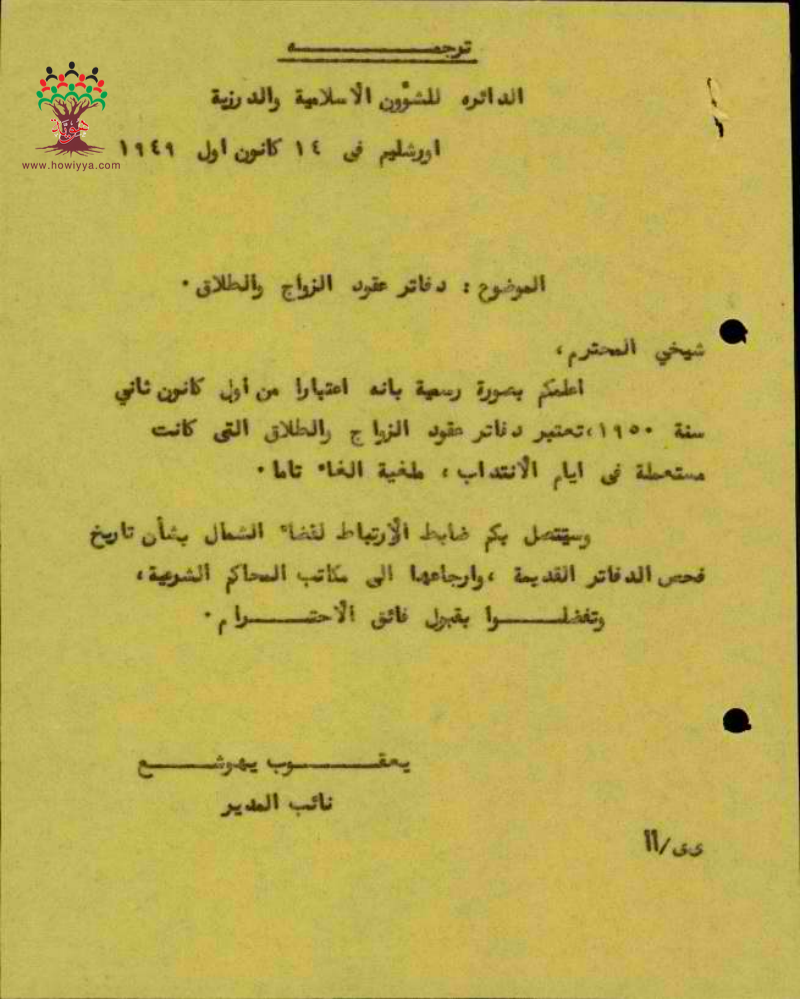 ترجمـــــــــــه
الدائره للشؤون الاسلامية والدرزية
اورشليم فى ١٤ كانون اول ١٩٤٩
www.howiyya.com
الموضوع : دفاتر عقود الزواج والطلاق ٠
شيخي المحترم،
اعلمكم بصورة رسمية بانه اعتبارا من اول كانون ثاني
سنة ١٩٥٠،تعتبر دفاتر عقود الزواج والطلاق التى كانت
مستعملة فى ايام الانتداب، ملغية الغاء تاما ٠
وسيتصل بكم ضابط الارتباط لقضاء الشمال بشأن تاريخ
فحص الدفاتر القديمة ،وارجاعها الى مكاتب المحاكم الشرعية،
وتفضلـــــوا بقبول فائق الاحتـــــرام ٠
يعقـــــوب يهوشـــــع
نائب المدير
ى ى/١١